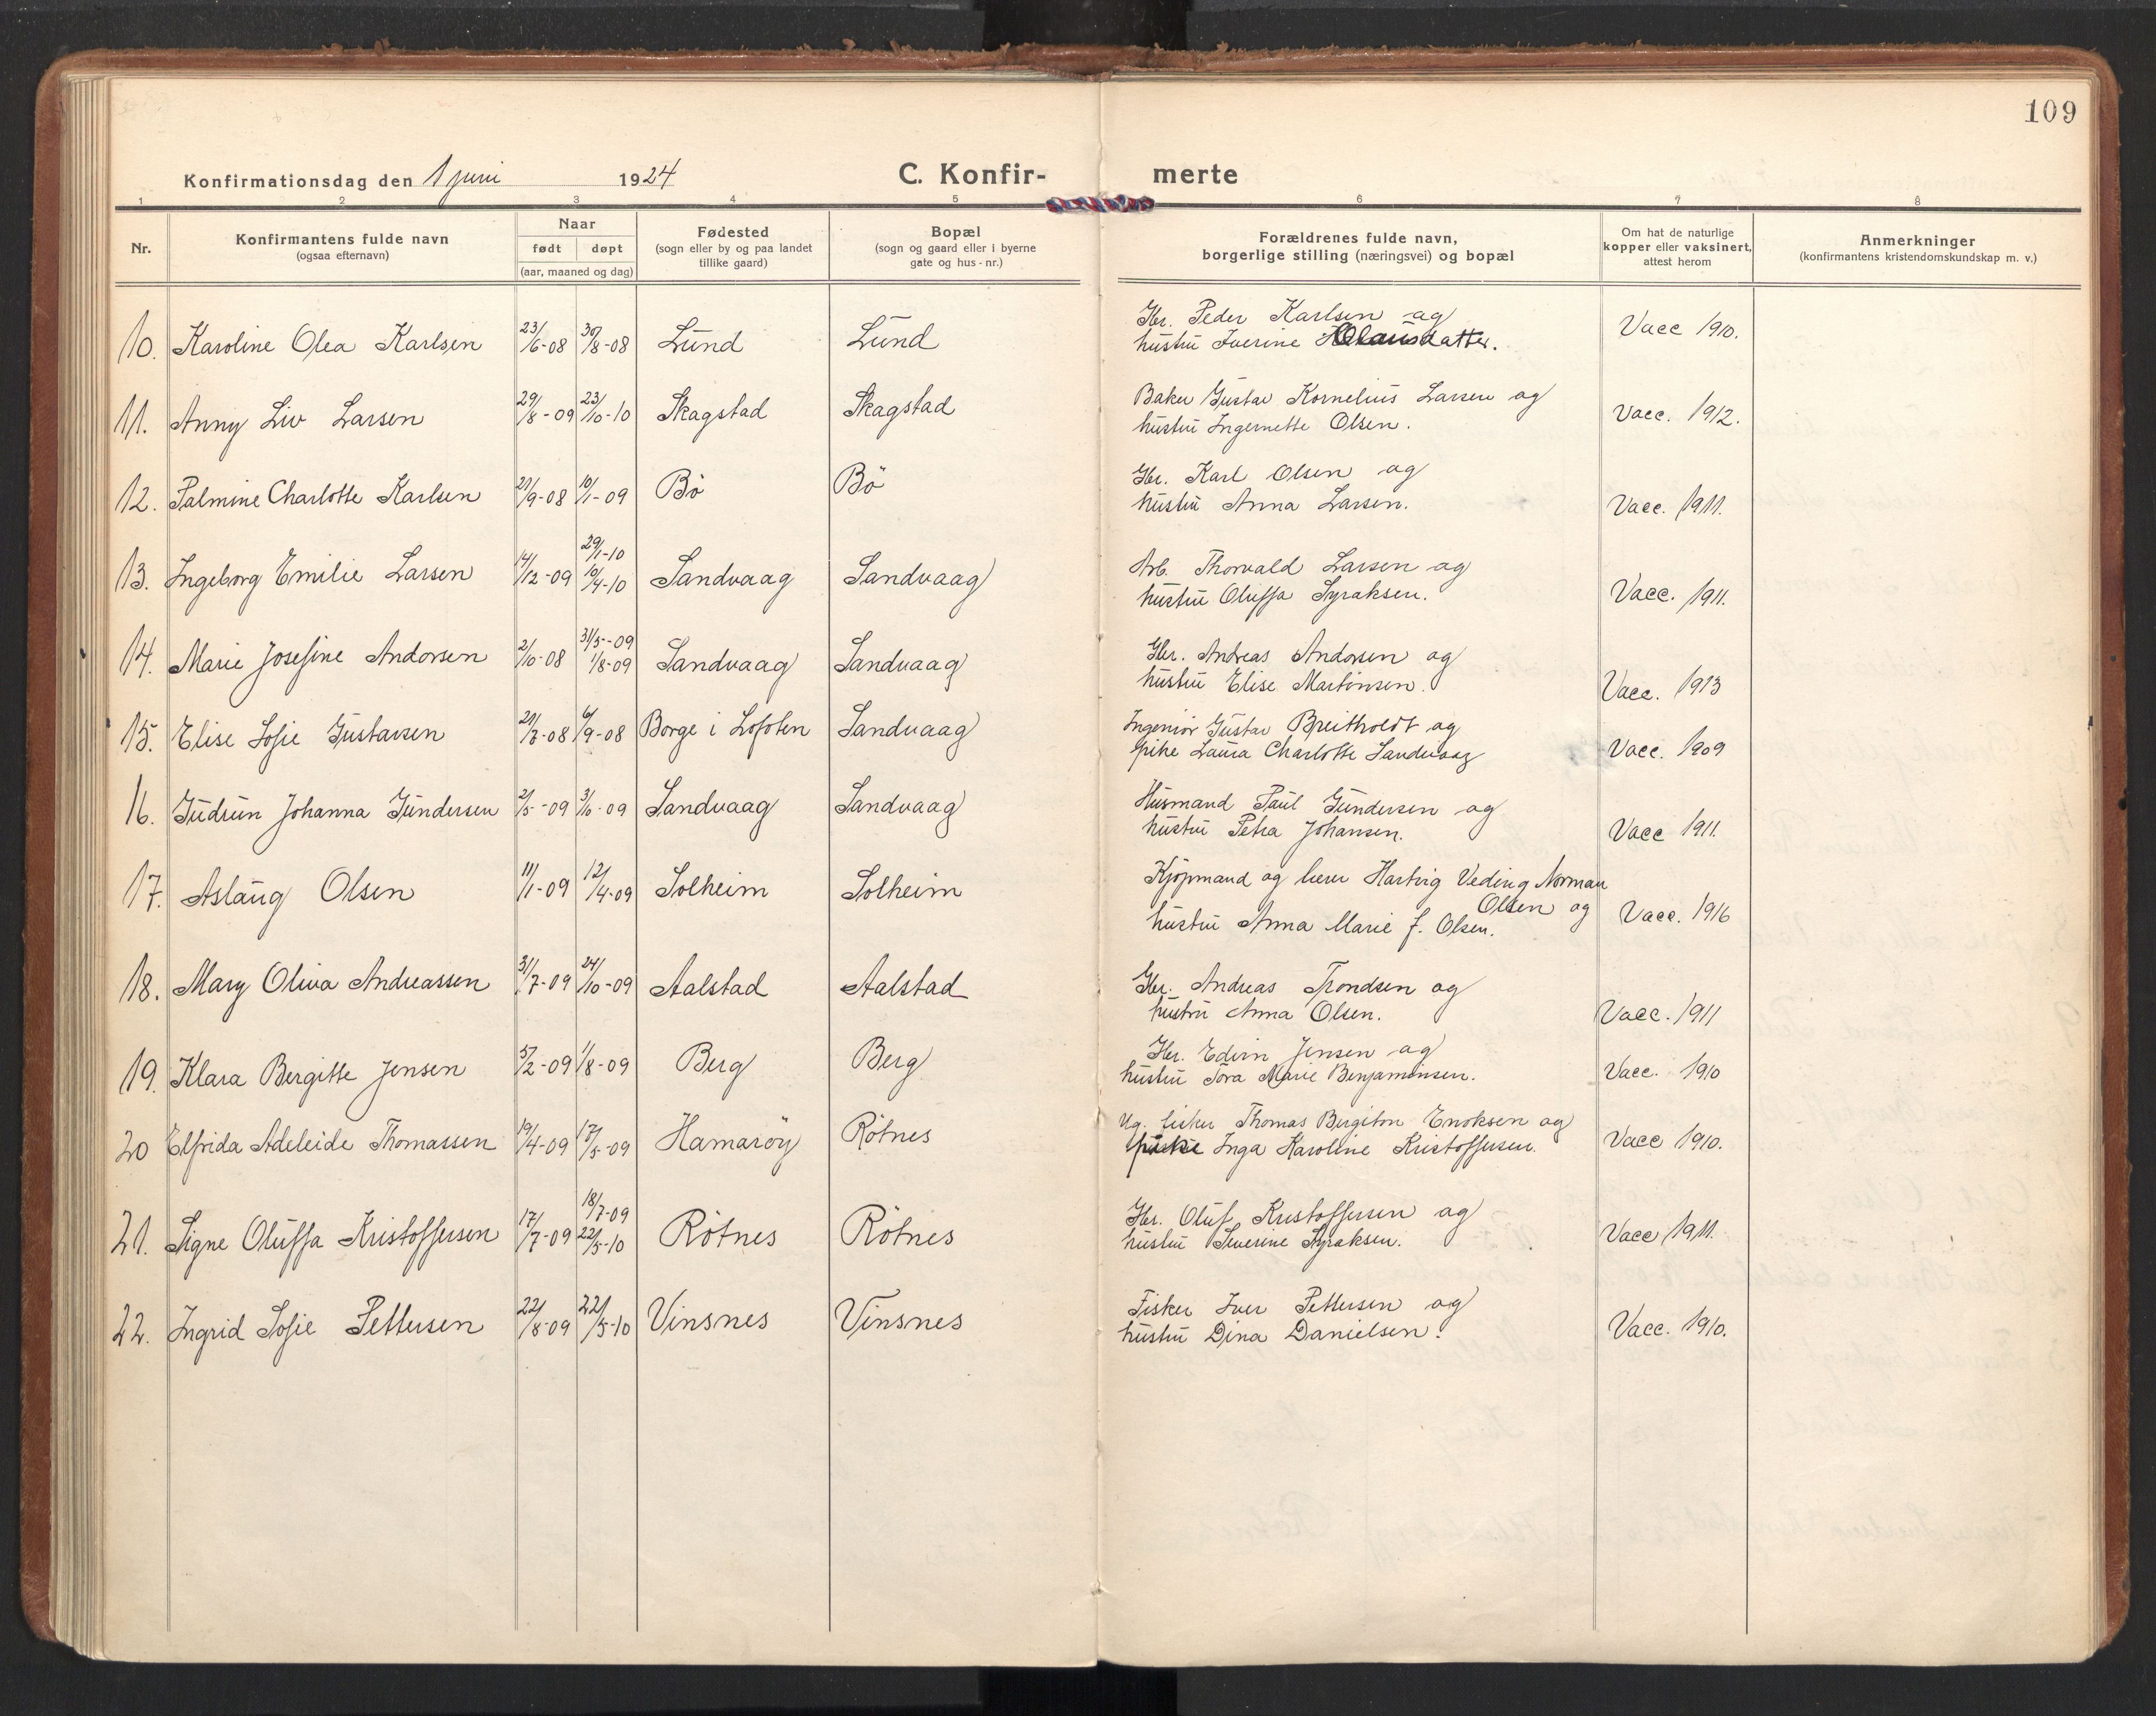 109
Konfirmationsdag den 1 juni 1924 C. Konfir- merte
1 2 3 4 5 6 7 8
Nr. Konfirmantens fulde navn (ogsaa efternavn) Naar født døpt (aar, maaned og dag) Fødested (sogn eller by og paa landet tillike gaard) Bopæl (sogn og gaard eller i byerne gate og hus-nr.) Forældrenes fulde navn, borgerlige stilling (næringsvei) og bopæl Om hat de naturlige kopper eller vaksinert, attest herom Anmerkninger (konfirmantens kristendomskundskap m. v.)
10. Karoline Olea Karlsen 23/6-08 30/8-08 Lund Lund Gbr. Peder Karlsen og
hustru Iverine Olausdatter. Vacc 1910.
11. Anny Liv Larsen 29/8-09 23/10-10 Skagstad Skagstad Baker Gustav Kornelius Larsen og
hustru Ingernette Olsen. Vacc. 1912.
12. Palmine Charlotte Karlsen 21/9-08 10/1-09 Bö Bö Gbr. Karl Olsen og
hustru Anna Larsen. Vacc. 1911.
13. Ingeborg Emilie Larsen 14/12-09 29/1-10 10/4-10 Sandvaag Sandvaag Arb. Thorvald Larsen og
hustru Oluffa Syraksen. Vacc. 1911.
14. Marie Josefine Andorsen 2/10-08 31/5-09 1/8-09 Sandvaag Sandvaag Gbr. Andreas Andorsen og
hustru Elise Martinsen. Vacc. 1913
15. Elise Sofie Gustavsen 6/9-08 Borge i Lofoten Sandvaag Ingeniör Gustav Breitholdt og
pike Laura Charlotte Sandvaag Vacc. 1909
16. Gudrun Johanna Gundersen 2/5-09 3/10-09 Sandvaag Sandvaag Husmand Paul Gundersen og
hustru Petra Johansen. Vacc 1911.
17. Aslaug Olsen 11/1-09 12/4-09 Solheim Solheim Kjöpmand og lærer Hartvig Veding Norman
Olsen og
hustru Anna Marie f. Olsen. Vacc. 1916
18. Mary Oliva Andreassen 31/7-09 24/10-09 Aalstad Aalstad Gbr. Andreas Trondsen og
hustru Anna Olsen. Vacc. 1911
19. Klara Bergitte Jensen 5/2-09 1/8-09 Berg Berg Gbr. Edvin Jensen og
hustru Tora Marie Benjaminsen. Vacc. 1910
20 Elfrida Adeleide Thomassen 19/4-09 17/5-09 Hamaröy Rötnes Ug. fisker Thomas Bergiton Enoksen og
pike Inga Karoline Kristoffersen. Vacc 1910.
21. Signe Oluffa Kristoffersen 17/7-09 18/7-09 22/5-10 Rötnes Rötnes Gbr. Oluf Kristoffersen og
hustru Severine Syraksen. Vacc 1911.
22. Ingrid Sofie Pettersen 22/8-09 22/5-10 Vinsnes Vinsnes Fisker Iver Pettersen og
hustru Dina Danielsen. Vacc. 1910.